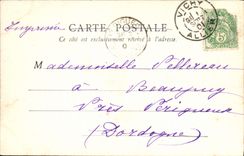 Imprimé
CARTE POSTALE
Ce côté est exclusivement réservé à l'adresse.
VICHY
ALLIER
5
Mademoiselle Pellereau
à Beaupuy
Près Périgueux
(Dordogne)